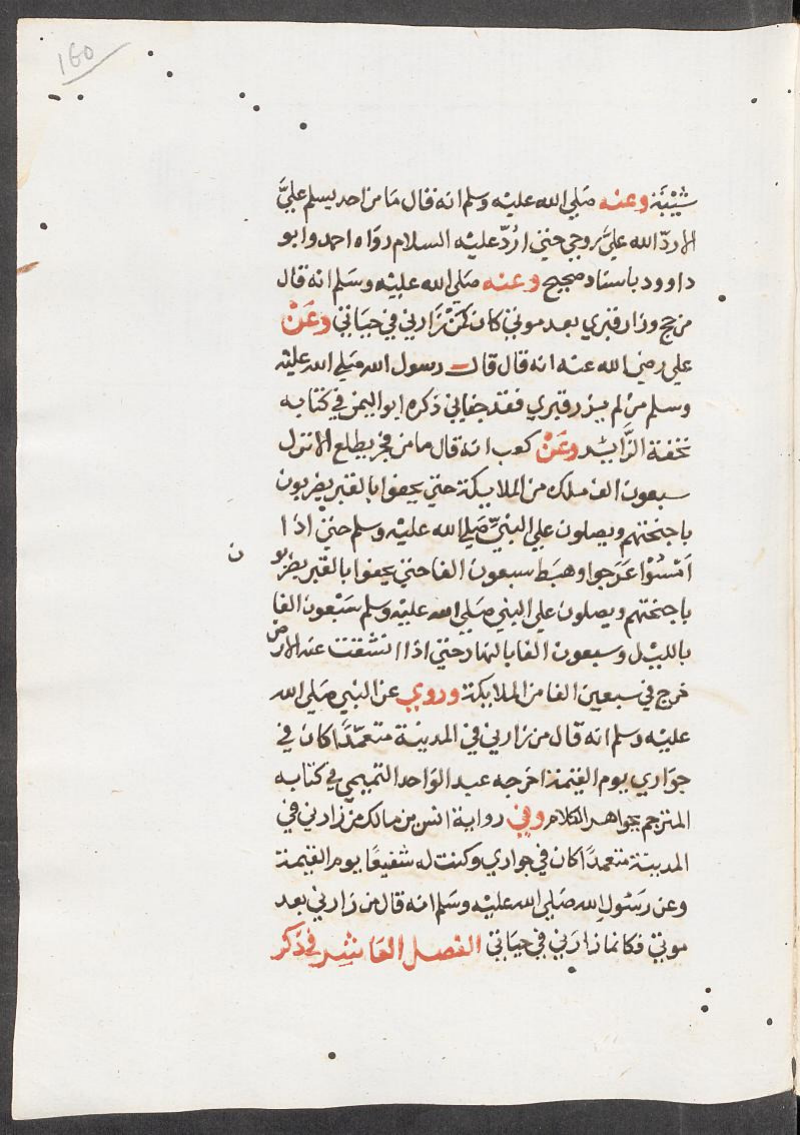 160
شَيْبَة وعنه صَلي الله عليْه وسلم انه قال مَا من احد يسلم عليَّ
الا ردّ الله عليَّ روحي حتي اَرُدّ عليْه السلام رواه احمد وابو
داوود باسناد صحيح وعنه صَلي الله عليْه وسَلم انه قال
من حج وزار قبري بعد موتي كان كمَنْ زَارني في حيَاتي وعَنْ
علي رضي الله عنه انه قال قال رسول الله صَلي الله عليْه
وسلم من لم يزر قبري فقد جفاني ذكره ابو اليمن في كتابه
تحفة الزَّاير وعَنْ كعب انه قال ما من فجر يطلع الا نزل
سبعون الف ملك من الملايكة حتي يحفوا بالقبر يضربون
باجنحتهم ويصلون علي النبيّ صَلي الله عليْه وسلم حتي اذا
اَمْسُوْا عَرَجوا وهبَط سبعون الفا حتي يحفوا بالقبر يضربو
ن
باجنحتهم ويصلون علي النبي صَلي الله عليْه وسلم سَبْعون الفا
بالليْل وسبعون الفا بالنهار حتي اذا انشقت عنه الارض
خرج في سبعين الفا من الملايكة وروي عن النبي صَلي الله
عليْه وسلم انه قال من زارني في المدينة متعمّدًا كان في
جوَاري يوم القيٰمة اخرجه عبد الوَاحد التميمي في كتابه
المترجم بجواهر الكلام وفي رواية انس بن مالك من زارني في
المدينة متعمدًا كان في جواري وكنت له شفيعًا يوم القيٰمة
وعن رسُول الله صَلي الله عليْه وسَلم انه قال من زارني بعد
موتي فكانما زارني في حيَاتي الفصل العَاشِر في ذكر